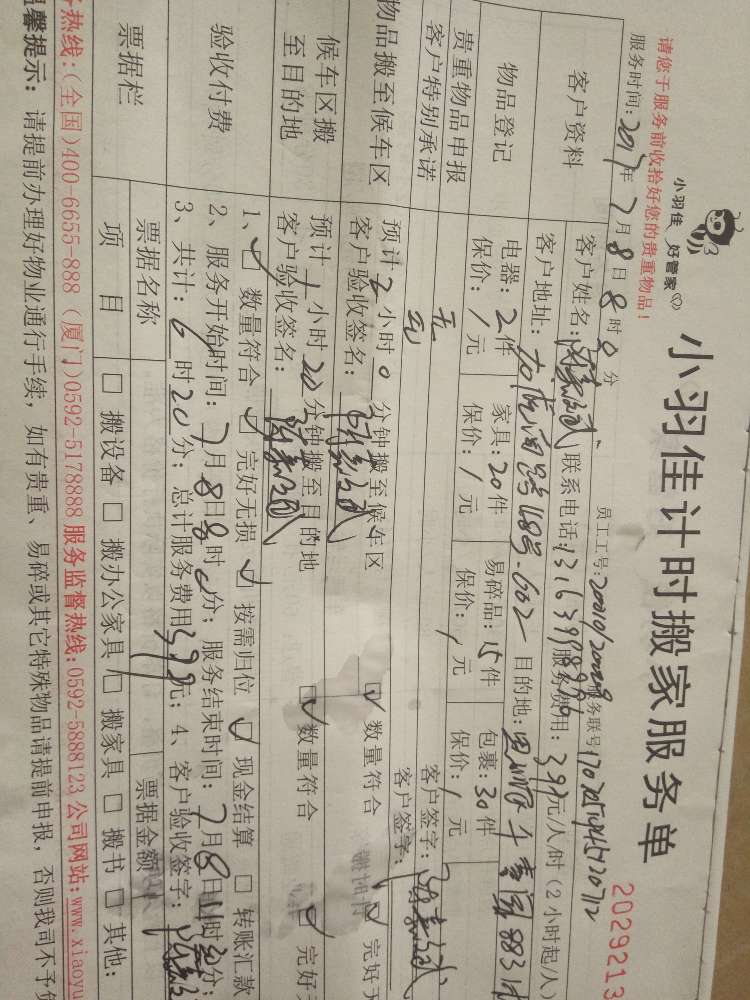 小羽佳 好管家
小羽佳计时搬家服务单
2029213
请您于服务前收拾好您的贵重物品!
服务时间: 2017年7月8日8时0分 员工工号: 服务联号
客户资料
客户姓名: 联系电话: 服务费用: 元/人/时(2小时起/人)
客户地址: 目的地:
物品登记
电器: 2件 家具: 20件 易碎品: 15件 包裹: 30件
保价: / 元 保价: / 元 保价: / 元 保价: / 元
贵重物品申报 无 客户签字:
客户特别承诺 无 客户签字:
物品搬至候车区
预计 2 小时 0 分钟搬至候车区 ☑ 数量符合 ☑ 完好无
客户验收签名:
候车区搬至目的地
预计 1 小时 20 分钟搬至目的地 ☑ 数量符合 ☑ 完好无
客户验收签名:
验收付费
1、☑ 数量符合 ☑ 完好无损 ☑ 按需归位 ☑ 现金结算 □ 转账汇款
2、服务开始时间: 7月8日8时0分; 服务结束时间: 7月8日 时 分;
3、共计: 6 时20分; 总计服务费用 元; 4、客户验收签字:
票据栏
票据名称 票据金额
项 目 □ 搬设备 □ 搬办公家具 □ 搬家具 □ 搬书 □ 其他:
务热线:(全国)400-6655-888 (厦门)0592-5178888 服务监督热线:0592-5888123 公司网站:www.xiaoyu
温馨提示: 请提前办理好物业通行手续,如有贵重、易碎或其它特殊物品请提前申报,否则我司不予